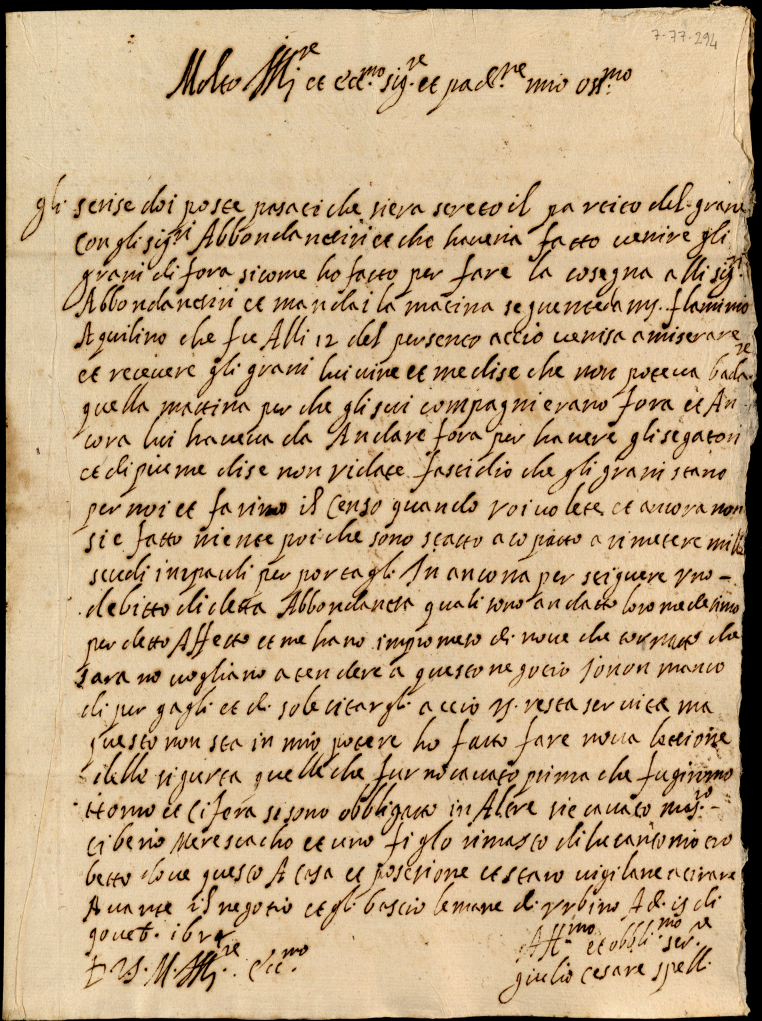 7-77-294
Molto Ill.re et ecc.mo sig.re et pad.ne mio oss.mo
gli scrise doi poste pasati che siera sereto il partito del grano
con gli sig.ri Abbondantiri et che haveria fatto venire gli
grani di fora sicome ho fatto per fare la cosegna alli sig.ri
Abbondantiri et mandai la matina seguente da ms. flaminio
Aquilino che fu Alli 12 del persente accio venisa a miserare
et recevere gli grani lui vine et me dise che non poteva badare
quella mattina per che gli sui compagni erano fora et An
cora lui haveva da Andare fora per havere gli segatori
et di piu me dise non vi date fastidio che gli grani stano
per noi et farimo il Censo quando voi volete et ancora non
si e fatto niente poi che sono statto a co a rimetere mille
scudi in pauli per portagli In ancona per stiguere uno
debitto di detta Abbondantia quali sono andatto loro medesimo
per detto Affetto et me hano impromeso di nove che tornato che
sara no vogliano atendere a questo negotio Io non manco
di pur gagli et di solecitargli accio vs. resta servita ma
questo non sta in mio potere ho fatto fare nova
delle sigurta quelle che furno cavato prima che
et ci fora si sono obbligatto in Altre sie cavato
tiberio et uno figlo rimasto di lucantonio cro
betto dove questo A casa et posesione et staro vigilane a tirare
Avante il negotio et gli bascio le mane di urbino Adi 15 di
D V.S. M. Ill.re Ecc.mo
Aff.mo et obbli.mo ser.re
giulio cesare spell.